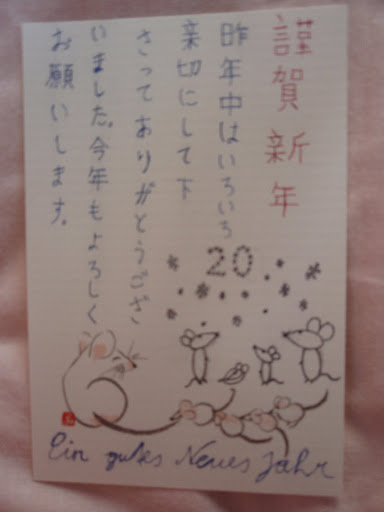 謹賀新年
昨年中はいろいろ
親切にして下
さってありがとうござ
いました。今年もよろしく
お願いします。
20
Ein gutes Neues Jahr